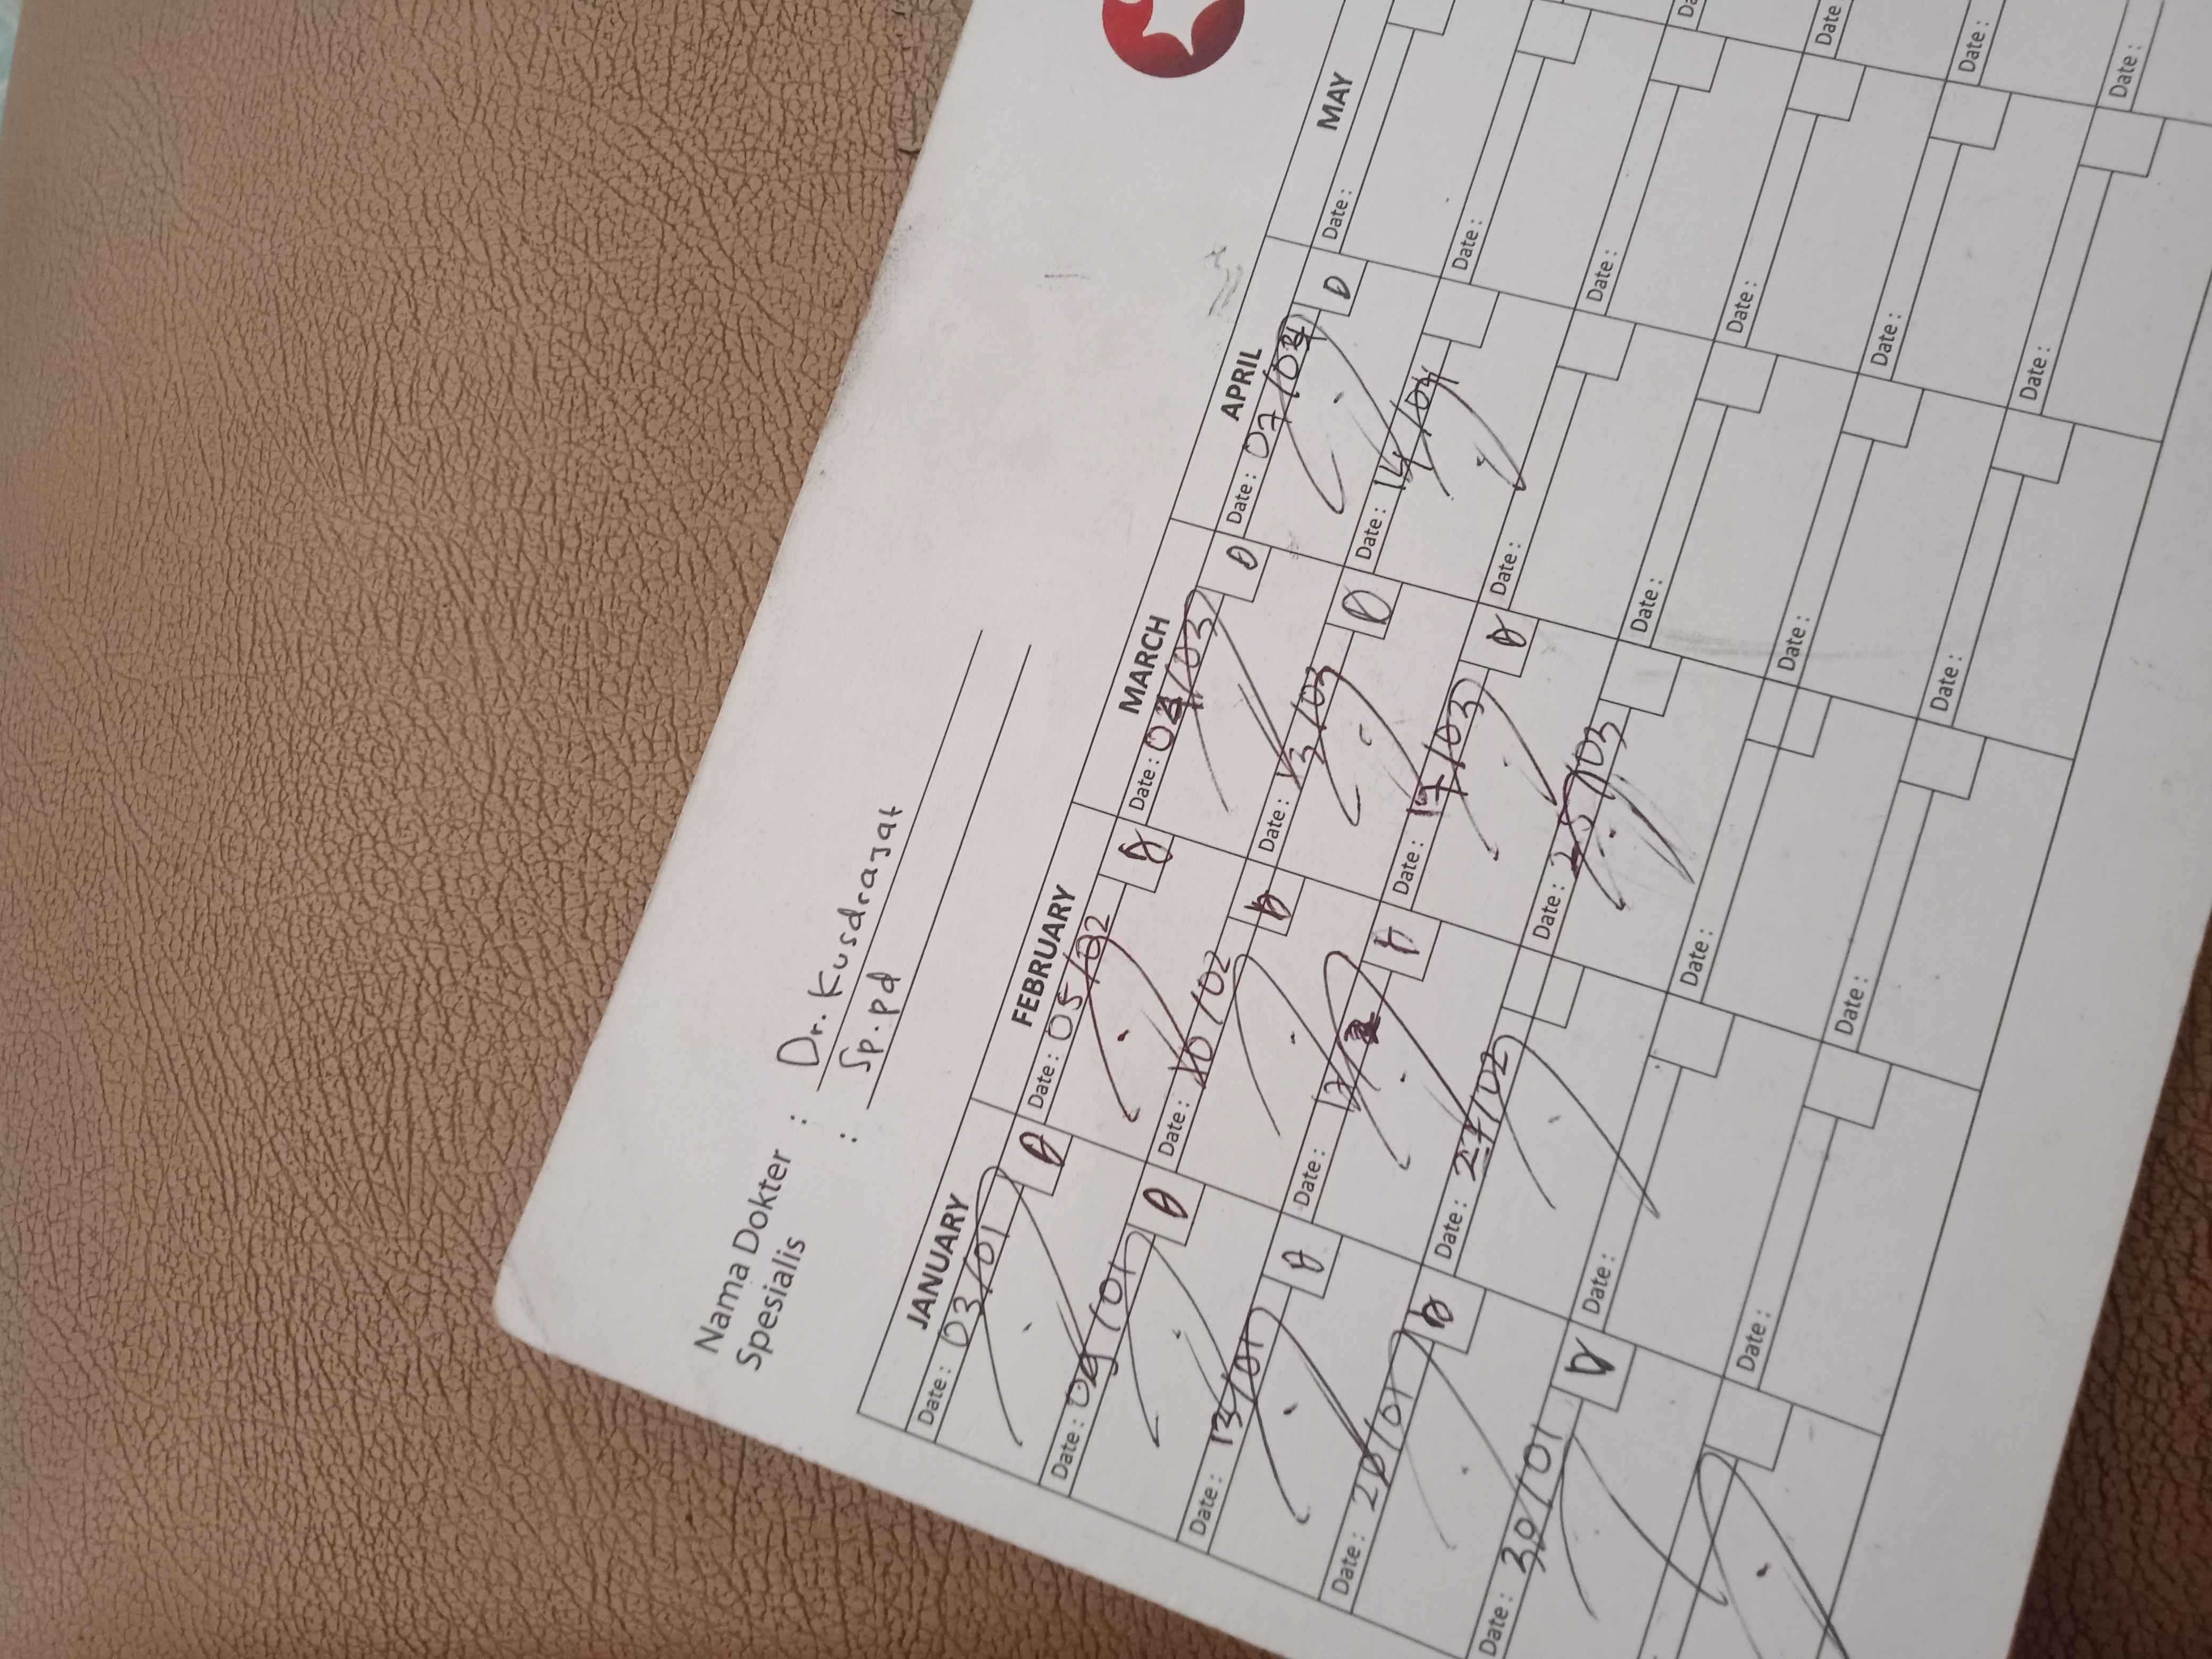 Nama Dokter : Dr. Kusdrajat
Spesialis : Sp.pd
JANUARY FEBRUARY MARCH APRIL MAY
Date: 03/01 D Date: 05/02 D Date: 04/03 D Date: 07/04 D Date:
Date: 09/01 D Date: 10/02 D Date: 13/03 D Date: 14/04 Date:
Date: 13/01 D Date: D Date: 17/03 D Date: Date:
Date: 20/01 D Date: 27/02 Date: 25/03 Date: Date:
Date: 30/01 D Date: Date: Date: Date:
Date: Date: Date: Date:
Date:
Date:
Date:
Date:
Date: